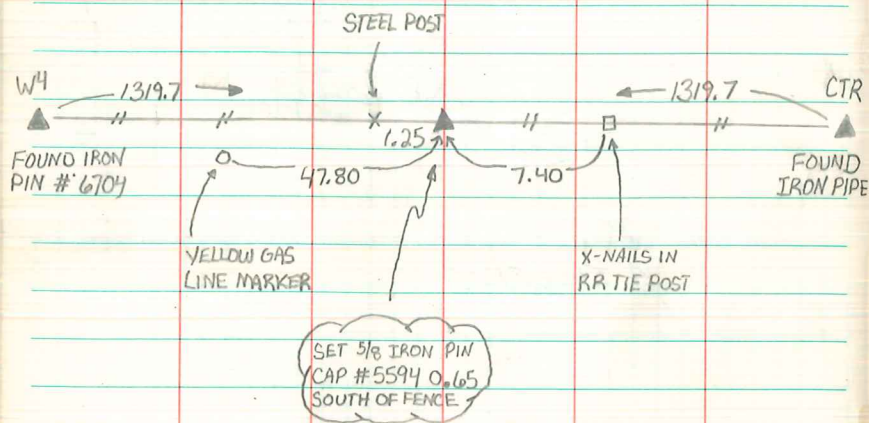 STEEL POST
W4
1319.7
1319.7
CTR
1.25
FOUND IRON
PIN # 6704
47.80
7.40
FOUND
IRON PIPE
YELLOW GAS
LINE MARKER
X-NAILS IN
RR TIE POST
SET 5/8 IRON PIN
CAP #5594 0.65
SOUTH OF FENCE